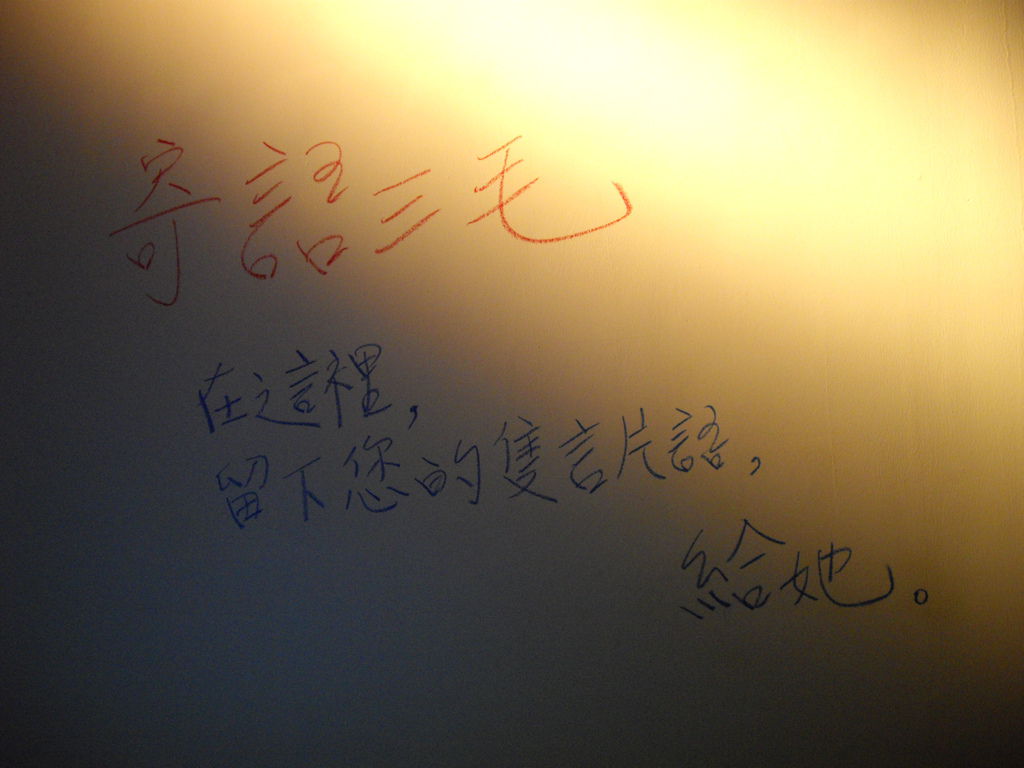 寄語三毛
在這裡,
留下您的隻言片語,
給她。